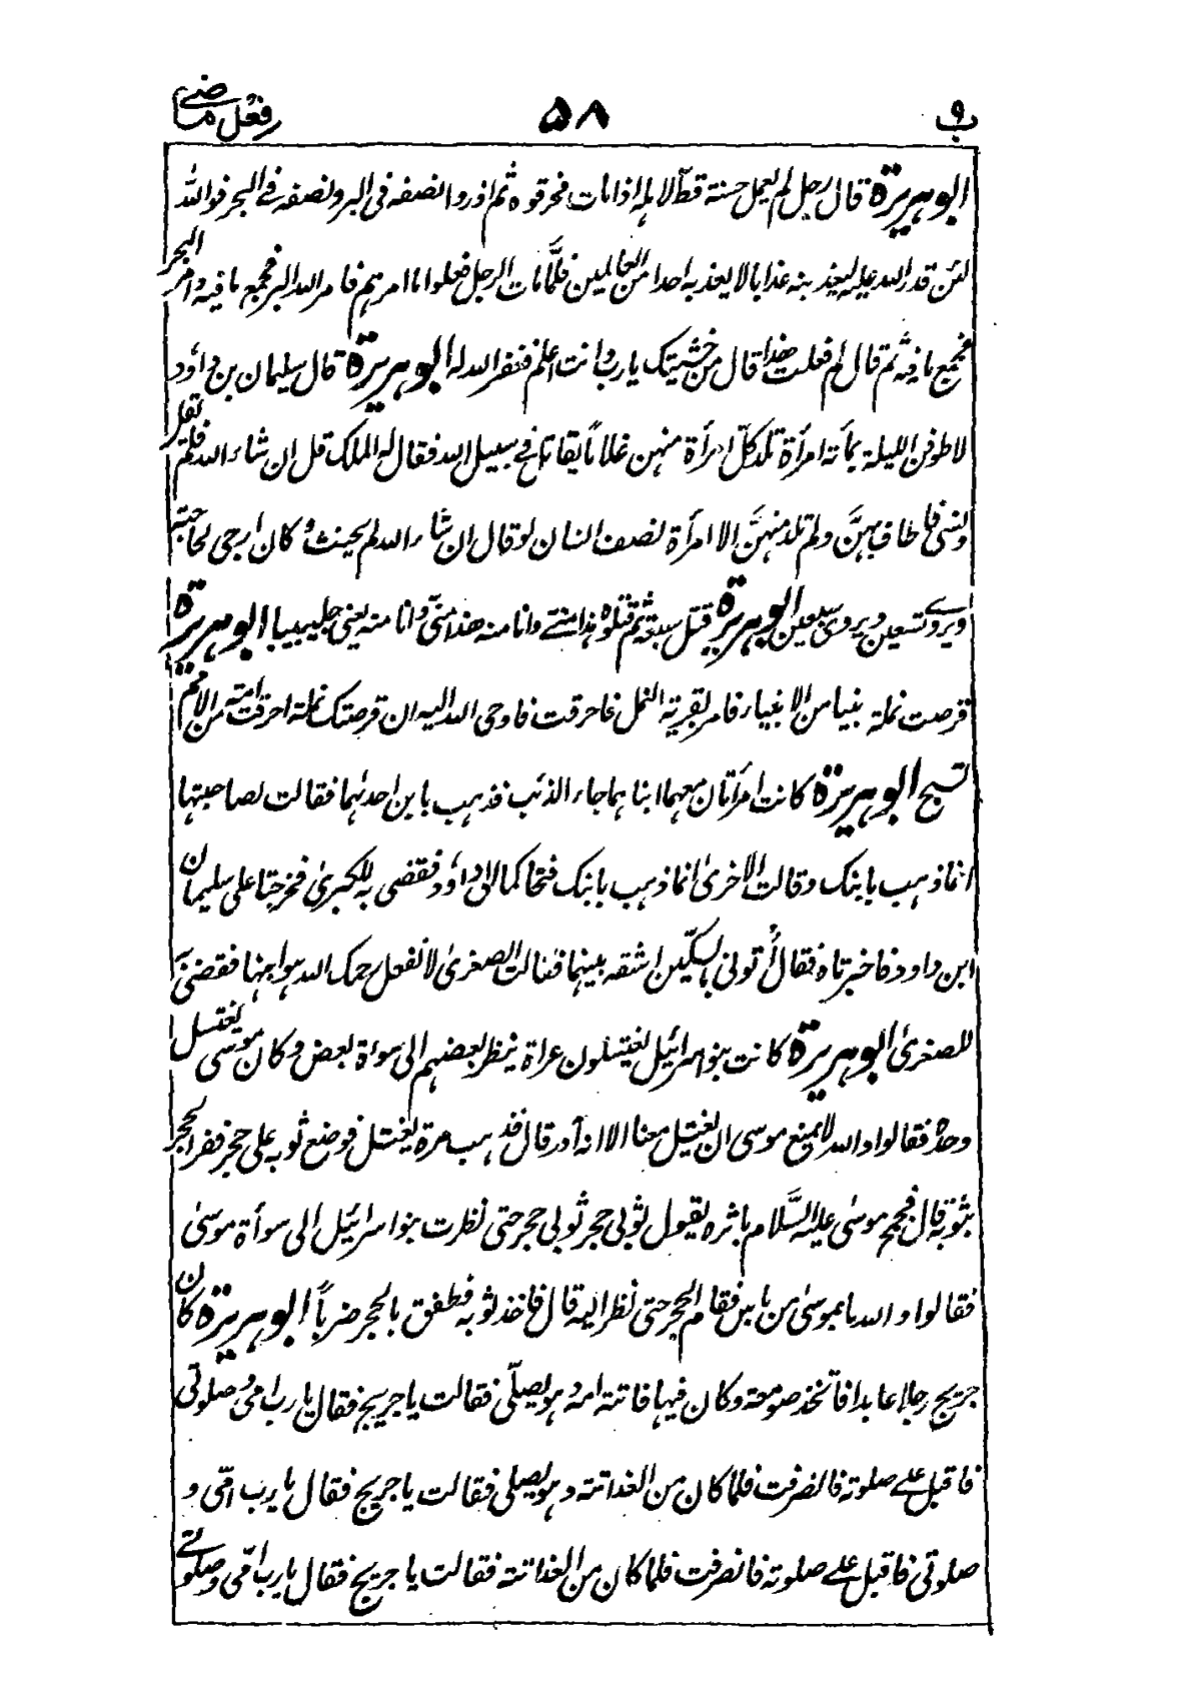 ب ٩ ۵۸ فعل ماضی
ابوهریرة قال رجل لم یعمل حسنة قطّ لاهله اذا مات فحرقوه ثم اذروا نصفه فی البر ونصفه فی البحر فوالله
لئن قدر الله علیه لیعذبنه عذابا لا یعذبه احدا من العالمین فلمّا مات الرجل فعلوا ما امرهم فامر الله البر فجمع ما فیه وامر البحر
فجمع ما فیه ثم قال لم فعلت هذا قال من خشیتک یارب وانت اعلم فغفر الله له ابوهریرة قال سلیمان بن داؤد
لاطوفن اللیلة بمأته امرأة تلد کلّ امرأة منهن غلاماً یقاتل فی سبیل الله فقال له الملک قل ان شاء الله فلم یقل
ونسی فاطاف بهنّ ولم تلد منهنّ الا امرأة نصف انسان لو قال ان شاء الله لم یحنث وکان ارجی لحاجته
ویروی تسعین ویروی سبعین ابوهریرة قتل سبعة ثم قتلوه هذا منّی وانا منه هذا منّی وانا منه یعنی جلیبیبا ابوهریرة
قرصت نملة نبیا من الانبیاء فامر بقریة النمل فاحرقت فاوحی الله الیه ان قرصتک نملة احرقت امّة من الامم
تسبح ابوهریرة کانت امرأتان معهما ابناهما جاء الذئب فذهب بابن احدٰهما فقالت لصاحبتها
انما ذهب بابنک وقالت الاخریٰ انما ذهب بابنک فتحاکما الی داؤد فقضی به للکبریٰ فخرجتا علی سلیمان
ابن داود فاخبرتاه فقال أتونی بالسکّین اشقه بینهما فقالت الصغریٰ لا تفعل رحمک الله هو ابنها فقضی به
للصغریٰ ابوهریرة کانت بنو اسرائیل یغتسلون عراة ینظر بعضهم الی سوءة بعض وکان موسٰی یغتسل
وحده فقالوا والله لا یمنع موسی ان یغتسل معنا الا انه آدر قال فذهب مرة یغتسل فوضع ثوبه علی حجر ففر الحجر
بثوبه قال فجمح موسیٰ علیه السَّلام باثره یقول ثوبی حجر ثوبی حجر حتی نظرت بنو اسرائیل الی سوأة موسیٰ
فقالوا والله ما بموسیٰ من باس فقام الحجر حتی نظر الیه قال فاخذ ثوبه فطفق بالحجر ضرباً ابوهریرة کان
جریج رجلا عابدا فاتخذ صومعة وکان فیها فاتته امه وهو یصلّی فقالت یا جریج فقال یارب امی وصلوتی
فاقبل علے صلوته فانصرفت فلما کان من الغد اتته وهو یصلی فقالت یا جریج فقال یارب امّی و
صلوتی فاقبل علے صلوته فانصرفت فلما کان من الغد اتته فقالت یا جریج فقال یارب امّی وصلوتے